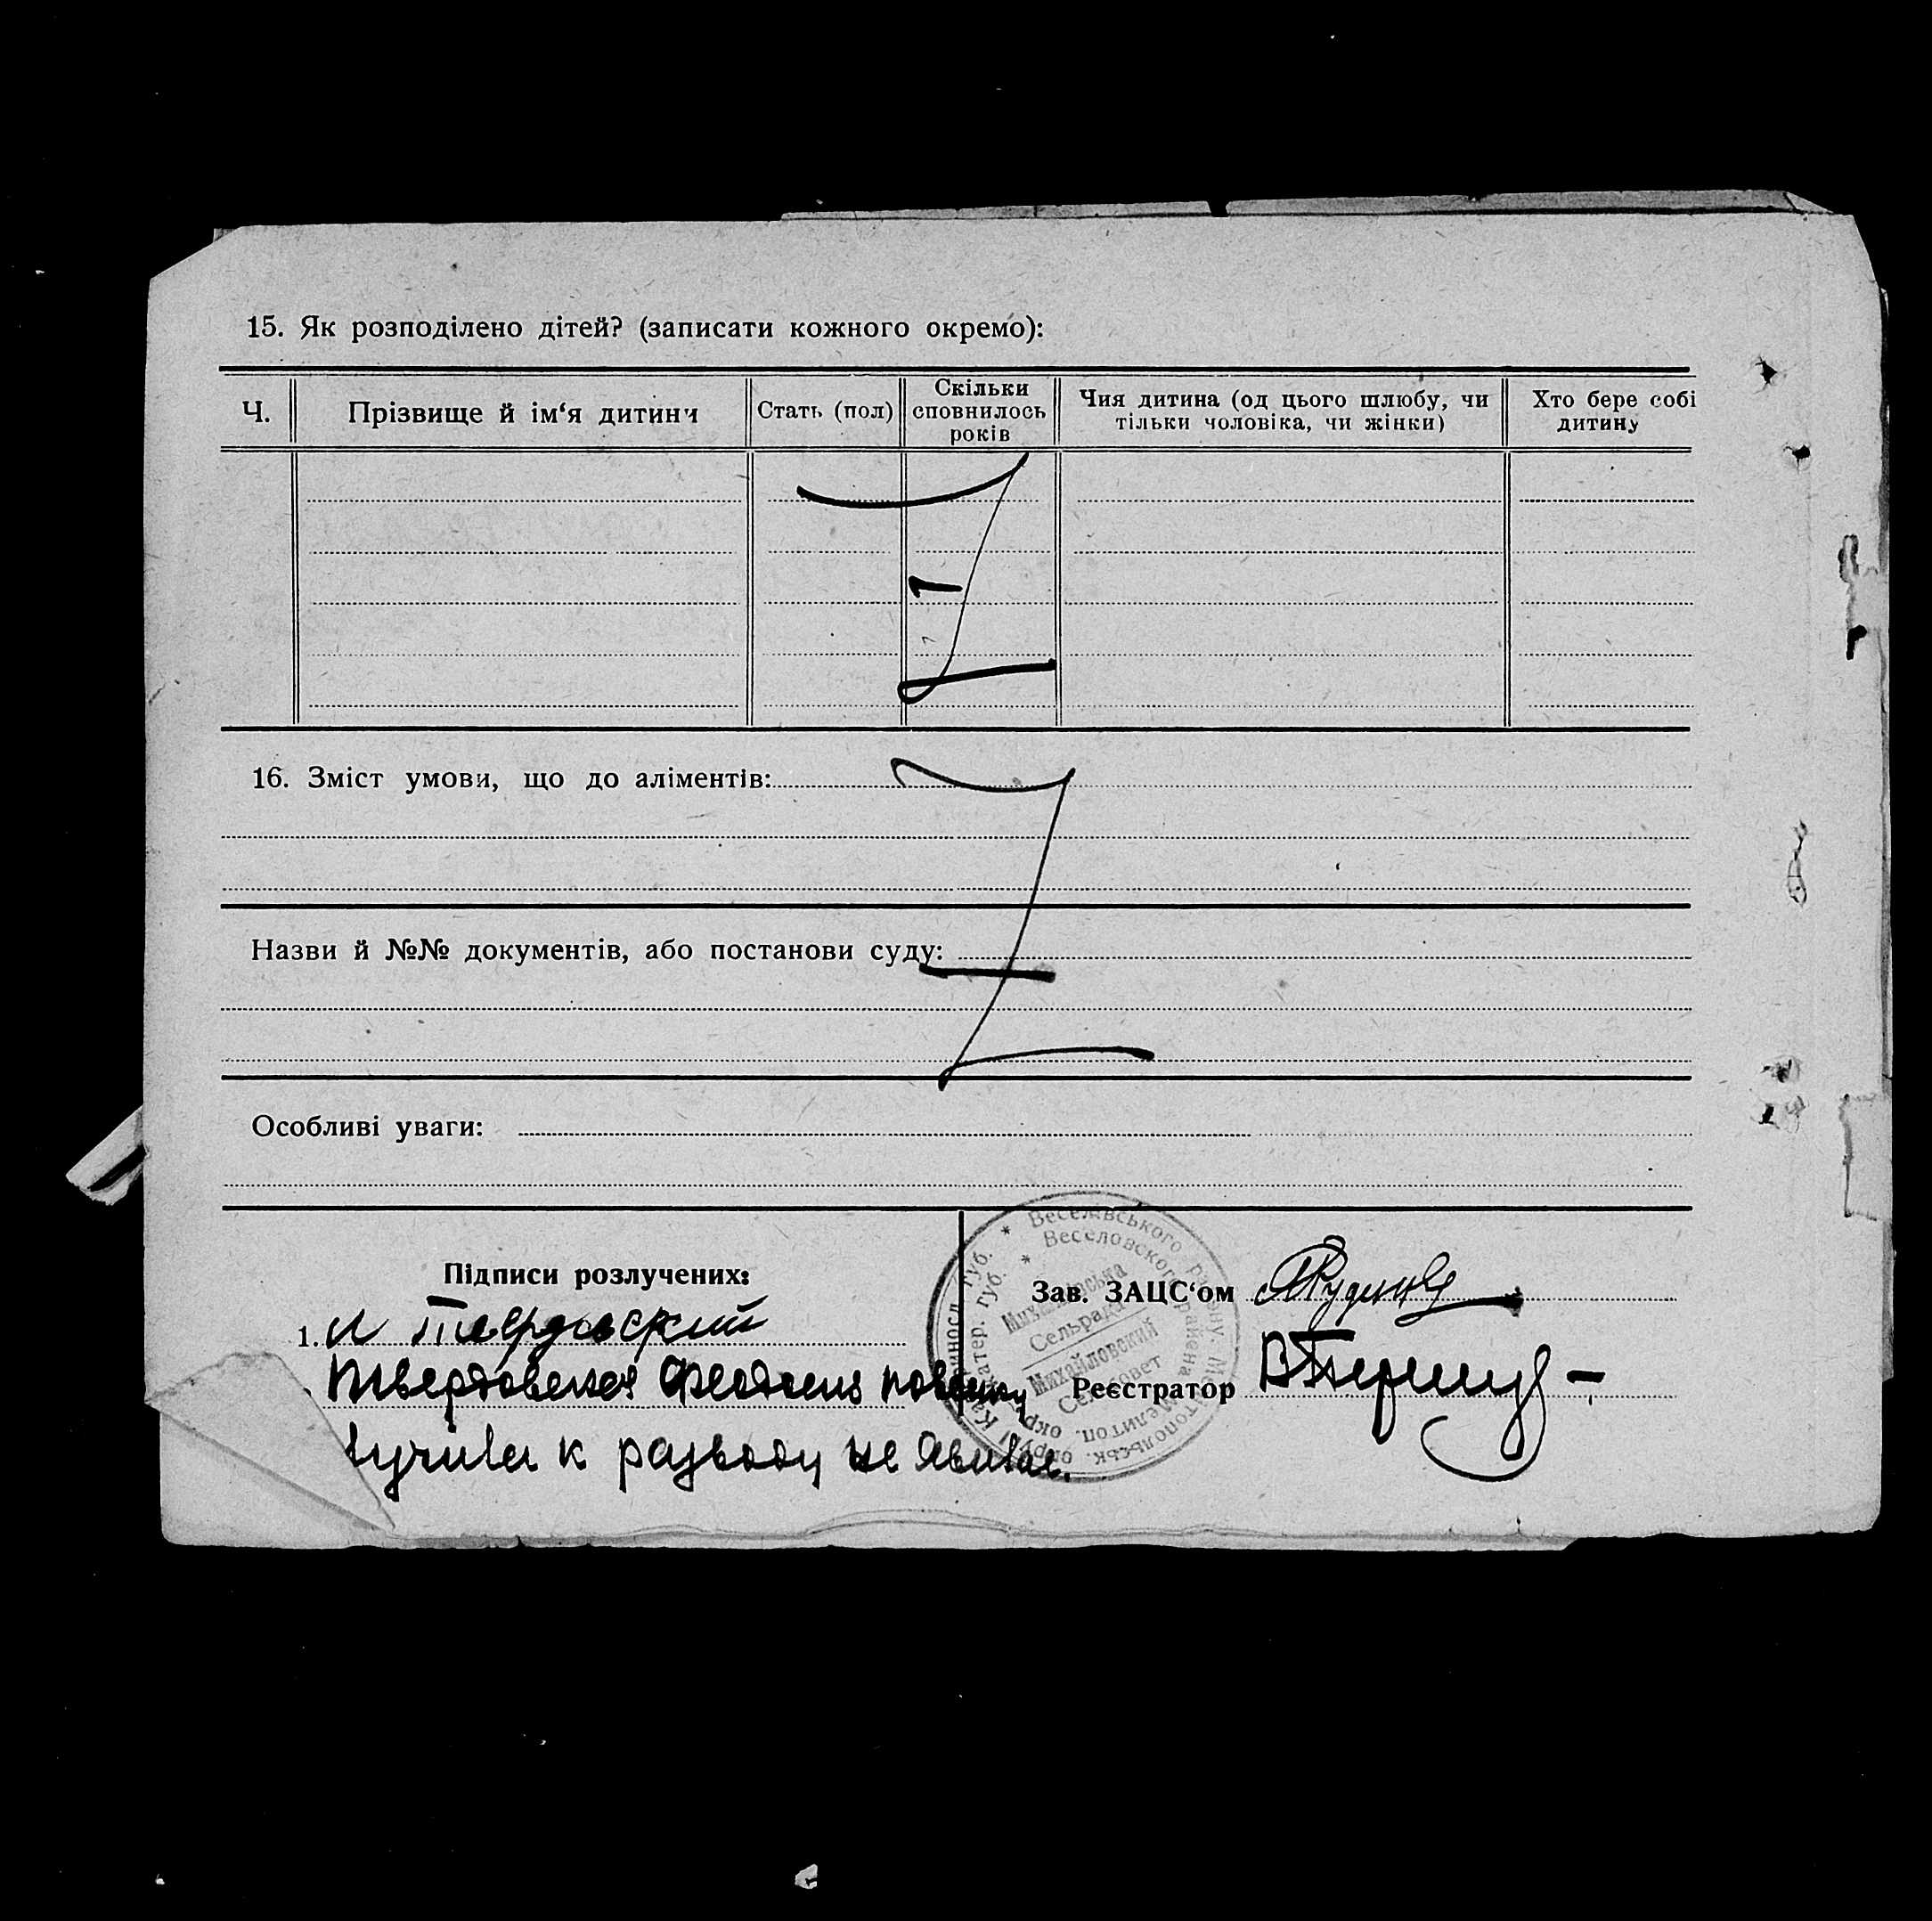 15. Як розподілено дітей? (записати кожного окремо):
Ч. Прізвище й ім‘я дитини Стать (пол) Скільки сповнилось років Чия дитина (од цього шлюбу, чи тільки чоловіка, чи жінки) Хто бере собі дитину
16. Зміст умови, що до аліментів:
Назви й №№ документів, або постанови суду:
Особливі уваги:
Підписи розлучених:
1. Твердовский
Твердовская Феодосия повестку
лучила к разводу не явилас.
Зав. ЗАЦС‘ом
Реєстратор
* Веселівського району. Мелітопольськ. округи Катериносл. губ.
* Веселовского района Мелитоп. окр. Катер. губ.
Михайлівська
Сельрада
Михайловский
Сельсовет